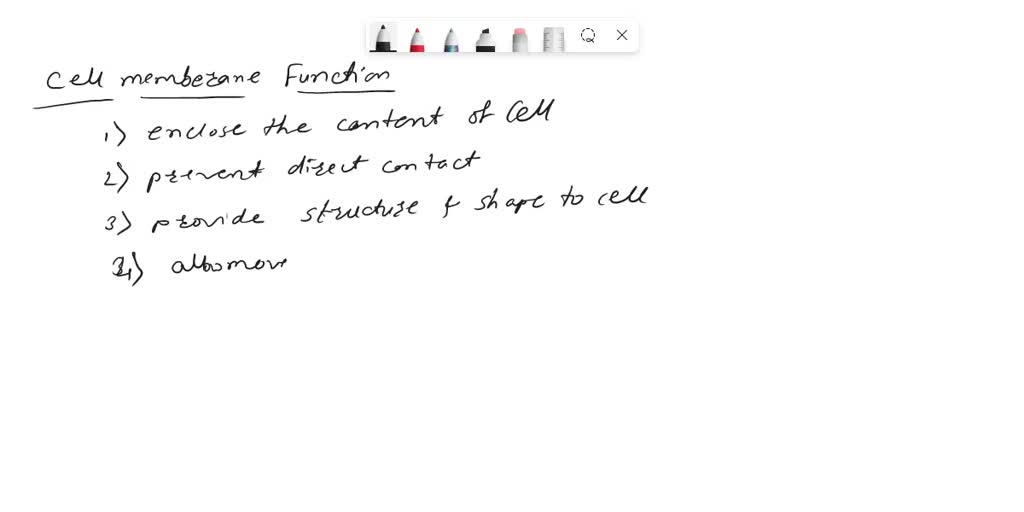 Cell membrane Function
1) enclose the content of Cell
2) prevent direct contact
3) provide structure & shape to cell
4) allo move